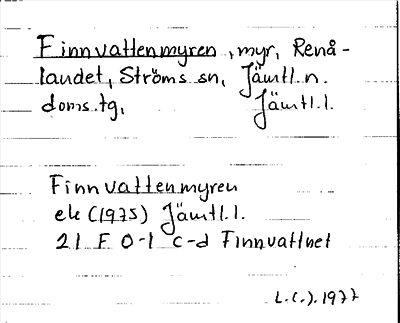 Finnvattenmyren, myr, Renå-
landet, Ströms sn, Jämtl. n.
doms.tg, Jämtl. l.
Finnvattenmyren
ek (1975) Jämtl. l.
21 F 0-1 c-d Finnvattnet
L.C.J. 1977